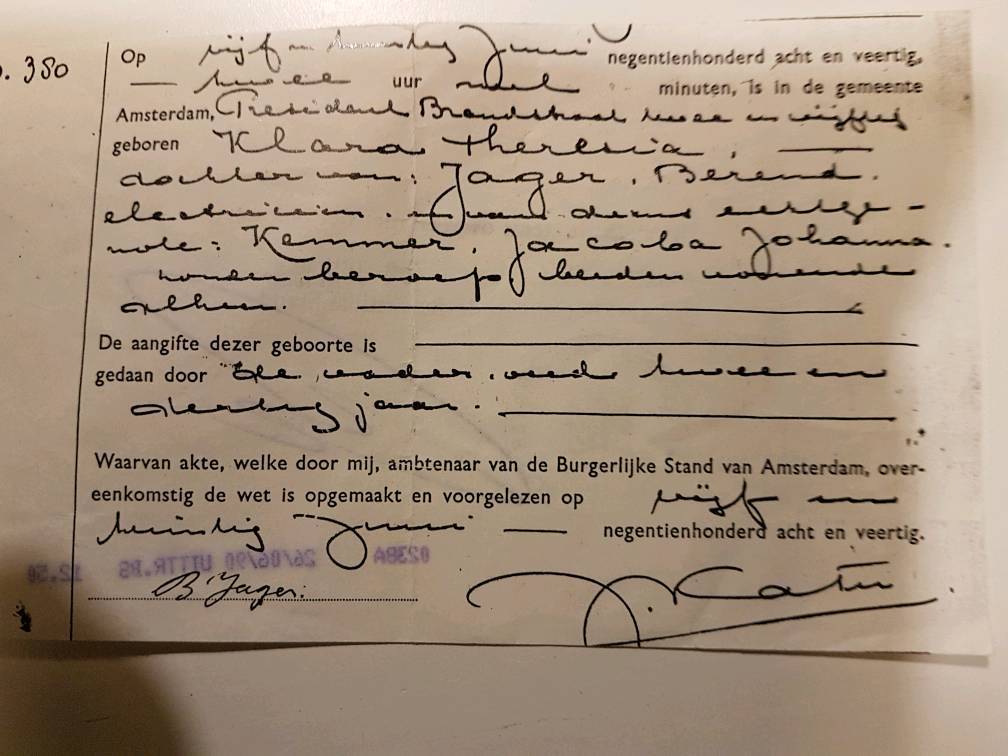 380
Op vijf en twintig Juni negentienhonderd acht en veertig,
— twee uur nul minuten, is in de gemeente
Amsterdam, President Brandstraat twee en vijftig
geboren Klara Theresia, —
dochter van: Jager, Berend.
electricien. en van diens echtge-
note: Kemmer, Jacoba Johanna.
zonder beroep, beiden wonende
alhier. —
De aangifte dezer geboorte is
gedaan door de vader, oud twee en
dertig jaar. —
Waarvan akte, welke door mij, ambtenaar van de Burgerlijke Stand van Amsterdam, over-
eenkomstig de wet is opgemaakt en voorgelezen op vijf en
twintig Juni — negentienhonderd acht en veertig.
0238A 26/06/90 UTTTR.RS 12.50
B Jager.